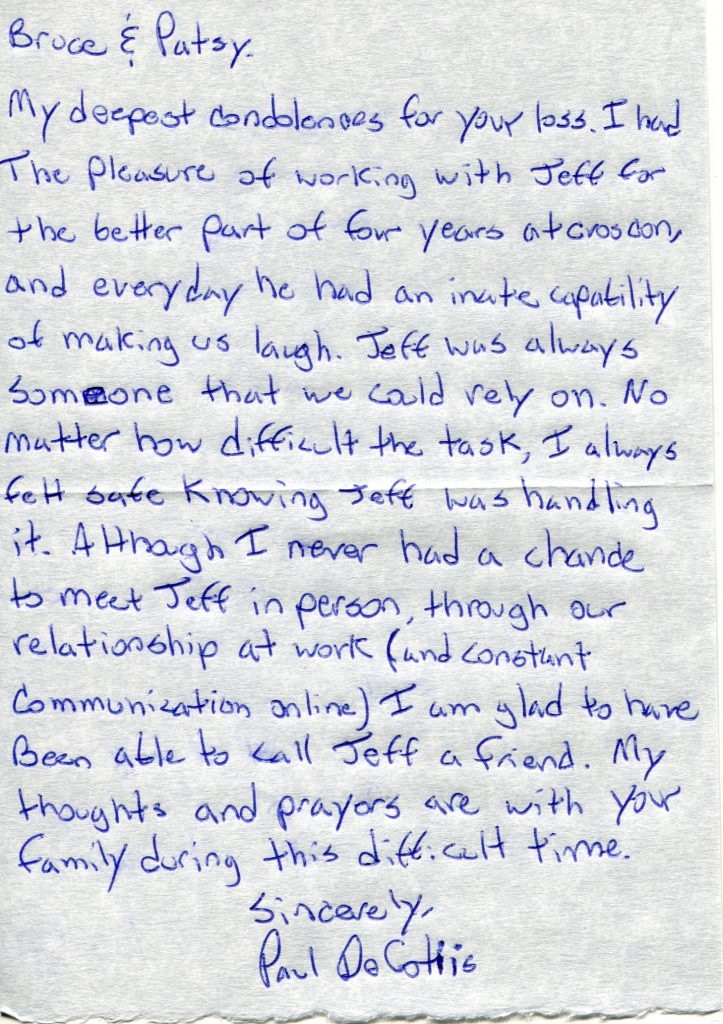 Bruce & Patsy.
My deepest condolences for your loss. I had
The pleasure of working with Jeff for
the better part of four years at croscon,
and everyday he had an inate capability
of making us laugh. Jeff was always
someone that we could rely on. No
matter how difficult the task, I always
felt safe knowing Jeff was handling
it. Although I never had a chance
to meet Jeff in person, through our
relationship at work (and constant
communication online) I am glad to have
Been able to call Jeff a friend. My
thoughts and prayers are with your
family during this difficult time.
Sincerely,
Paul DeCottis